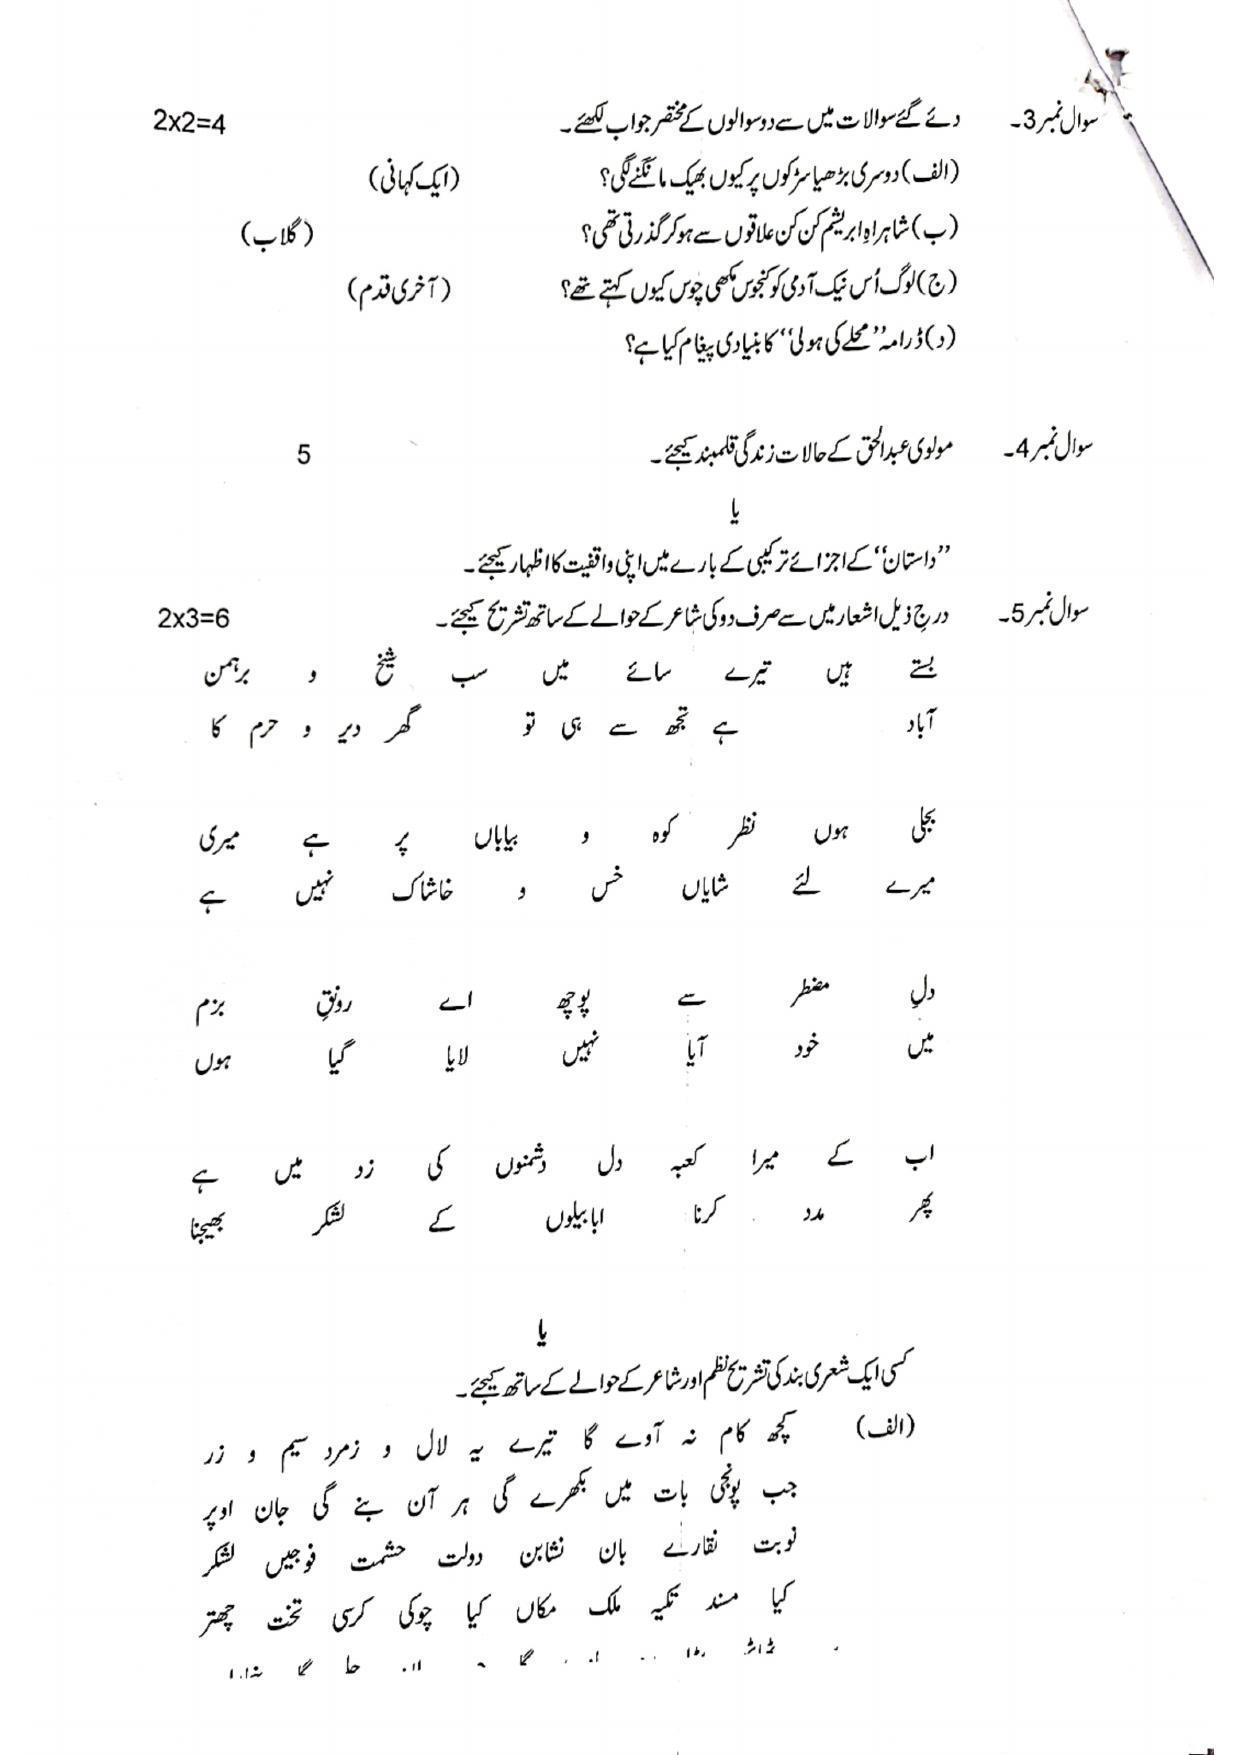 سوال نمبر 3۔ دئے گئے سوالات میں سے دو سوالوں کے مختصر جواب لکھئے۔ 2x2=4
(الف) دوسری بڑھیا سڑکوں پر کیوں بھیک مانگنے لگی؟ (ایک کہانی)
(ب) شاہراہِ ابریشم کن کن علاقوں سے ہو کر گذرتی تھی؟ (گلاب)
(ج) لوگ اُس نیک آدمی کو کنجوس مکھی چوس کیوں کہتے تھے؟ (آخری قدم)
(د) ڈرامہ ”محلے کی ہولی“ کا بنیادی پیغام کیا ہے؟
سوال نمبر 4۔ مولوی عبدالحق کے حالات زندگی قلمبند کیجئے۔ 5
یا
”داستان“ کے اجزائے ترکیبی کے بارے میں اپنی واقفیت کا اظہار کیجئے۔
سوال نمبر 5۔ درج ذیل اشعار میں سے صرف دو کی شاعر کے حوالے کے ساتھ تشریح کیجئے۔ 2x3=6
بستے ہیں تیرے سائے میں سب شیخ و برہمن
آباد ہے تجھ سے ہی تو گھر دیر و حرم کا
بجلی ہوں نظر کوہ و بیاباں پر ہے میری
میرے لئے شایاں خس و خاشاک نہیں ہے
دلِ مضطر سے پوچھ اے رونقِ بزم
میں خود آیا نہیں لایا گیا ہوں
اب کے میرا کعبہ دل دشمنوں کی زد میں ہے
پھر مدد کرنا ابابیلوں کے لشکر بھیجنا
یا
کسی ایک شعری بند کی تشریح نظم اور شاعر کے حوالے کے ساتھ کیجئے۔
(الف) کچھ کام نہ آوے گا تیرے یہ لال و زمرد سیم و زر
جب پونجی بات میں بکھرے گی ہر آن بنے گی جان اوپر
نوبت نقارے بان نشاین دولت حشمت فوجیں لشکر
کیا مسند تکیہ ملک مکاں کیا چوکی کرسی تخت چھتر